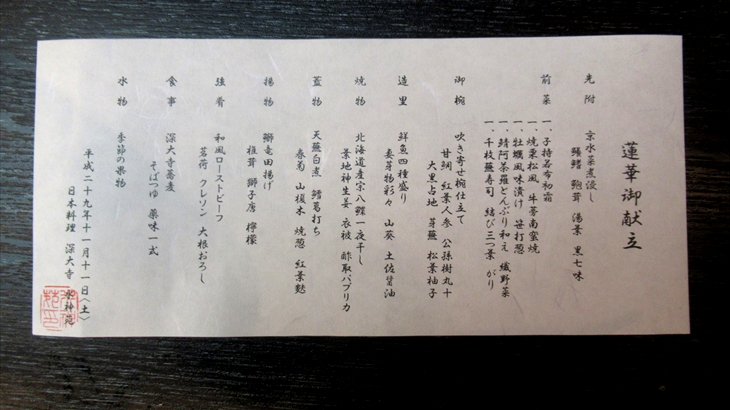 蓮華御献立
先附 京水菜煮浸し
鰻鰭 鮑茸 湯葉 黒七味
前菜 一、子持若布初霜
一、焼栗松風 牛蒡南蛮焼
一、牡蠣風味漬け 笹打葱
一、鯖阿茶羅どんぶり和え 繊野菜
一、千枚蕪寿司 結び三つ葉 がり
御椀 吹き寄せ椀仕立て
甘鯛 紅葉人参 公孫樹丸十
大黒占地 芽蕪 松葉柚子
造里 鮮魚四種盛り
妻芽物彩々 山葵 土佐醤油
焼物 北海道産宗八鰈一夜干し
葉地神生姜 衣被 酢取パプリカ
蓋物 天蕪白煮 鱈葛打ち
春菊 山榎木 焼葱 紅葉麩
揚物 鰤竜田揚げ
椎茸 獅子唐 檸檬
強肴 和風ローストビーフ
茗荷 クレソン 大根おろし
食事 深大寺蕎麦
そばつゆ 薬味一式
水物 季節の果物
平成二十九年十一月十一日〈土〉
日本料理 深大寺 水神苑